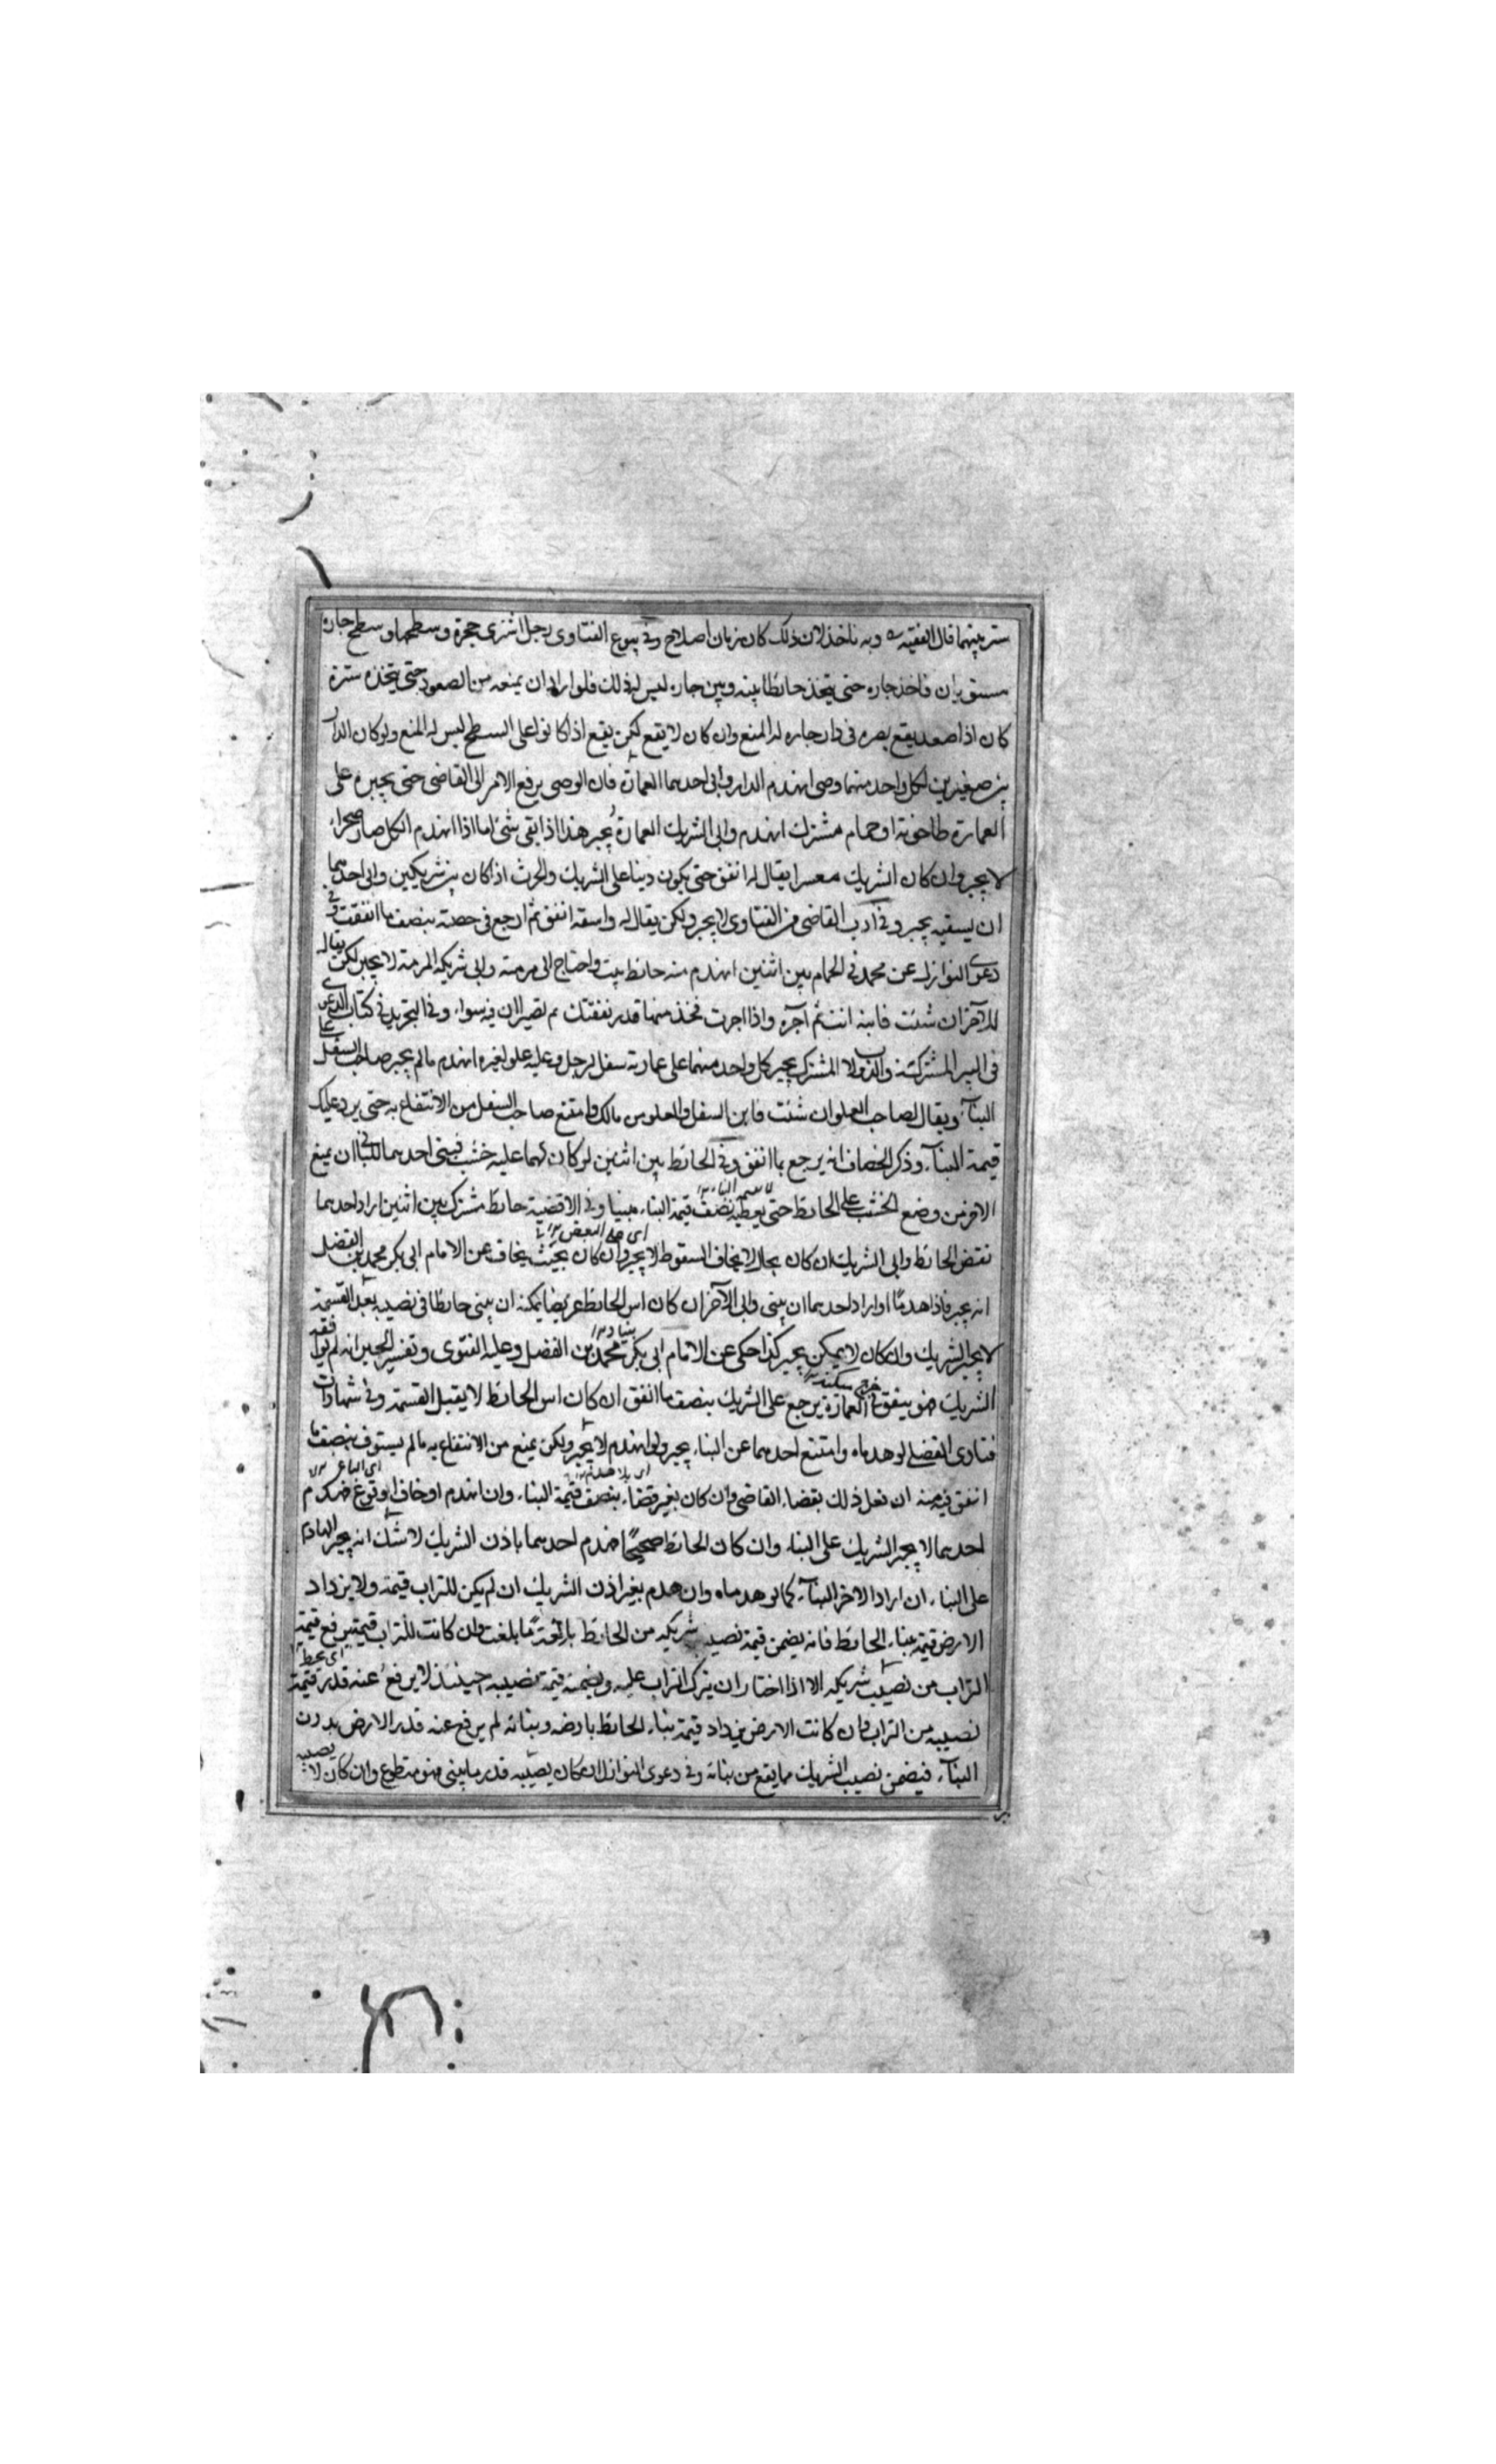 ستر بينهما قال الفقيه وبه ناخذ لان ذلك كان زمان اصلاح وفي بيوع الفتاوى رجل اشترى حجرة وسطحها وسطح جاره
مستويان فاخذ جاره حتى يتخذ حائطا بينه وبين جاره ليس له ذلك فلو اراد ان يمنعه من الصعود حتى يتخذ سترة
كان اذا صعد يقع بصره في دار جاره له المنع وان كان لا يقع لكن يقع اذا كانوا على السطح ليس له المنع ولو كان الدار
بين صغيرين لكل واحد منهما وصى انهدم الدار وابى احدهما العمارة فان الوصي يرفع الامر الى القاضي حتى يجبره على
العمارة طاحونة او حمام مشترك انهدم وابى الشريك العمارة يجبر هذا اذا بقي شئ اما اذا انهدم الكل صار صحراء
لا يجبر وان كان الشريك معسرا يقال له انفق حتى يكون دينا على الشريك والحرث اذا كان بين شريكين وابى احدهما
ان يسقيه يجبر وفي ادب القاضي من الفتاوى لا يجبر ولكن يقال له واسقه انفق ثم ارجع في حصته بنصف ما انفقت وفي
دعوى النوازل عن محمد في الحمام بين اثنين انهدم منه حائط بيت واحتاج الى مرمته وابى شريكه المرمة لا يجبر لكن يقال
للآخر ان شئت فابنه انت ثم آجره واذا اجرت فخذ منها قدر نفقتك ثم تصيران فيه سواء وفي التجريد في كتاب الدعوى
في البير المشتركة والدولاب المشترك يجبر كل واحد منهما على عمارته سفل لرجل وعليه علو لغيره انهدم مالم يجبر صاحب السفل على
البناء ويقال لصاحب العلو ان شئت فابن السفل والعلو من مالك وامتنع صاحب السفل من الانتفاع به حتى يرد عليك
قيمة البناء وذكر الخصاف انه يرجع بما انفق وفي الحائط بين اثنين لو كان لهما عليه خشب فبنى احدهما للباني ان يمنع
الاخر من وضع الخشب على الحائط حتى يعطيه نصف قيمة البناء مبنيا وفي الاقضية حائط مشترك بين اثنين اراد احدهما
نقض الحائط وابى الشريك ان كان بحال لا يخاف السقوط لا يجبر وان كان بحيث يخاف عن الامام ابى بكر محمد بن الفضل
انه يجبر فاذا هدما او اراد احدهما ان يبنى وابى الآخر ان كان اس الحائط عريضا يمكنه ان يبنى حائطا في نصيبه بعد القسمة
لا يجبر الشريك وان كان لا يمكن يجبر كذا حكى عن الامام ابى بكر محمد بن الفضل وعليه الفتوى وتفسير الجبر انه لم يوافقه
الشريك هو ينفق في العمارة يرجع على الشريك بنصف ما انفق ان كان اس الحائط لا يقبل القسمة وفي شهادات
فتاوى الفضلي لو هدماه وامتنع احدهما عن البناء يجبر ولو انهدم لا يجبر ولكن يمنع من الانتفاع به مالم يستوف نصف ما
انفق فيه منه ان فعل ذلك بقضاء القاضي وان كان بغير قضاء بنصف قيمة البناء وان انهدم او خاف وقوع فهدم
احدهما لا يجبر الشريك على البناء وان كان الحائط صحيحا فهدم احدهما باذن الشريك لا شك انه يجبر الهادم
على البناء ان اراد الاخر البناء كما لو هدماه وان هدم بغير اذن الشريك ان لم يكن للتراب قيمة ولا يزداد
الارض قيمة ببناء الحائط فانه يضمن قيمة نصيب شريكه من الحائط بالغة ما بلغت وان كانت للتراب قيمة يرفع قيمة
التراب من نصيب شريكه الا اذا اختار ان يترك التراب عليه ويضمنه قيمة نصيبه حينئذ لا يرفع عنه قدر قيمة
نصيبه من التراب وان كانت الارض يزداد قيمة ببناء الحائط بارضه وبنائه لم يرفع عنه قدر الارض بدون
البناء فيضمن نصيب الشريك مما يقع من بنائه وفي دعوى النوازل ان كان يصيبه قدر ما يبنى فهو متطوع وان كان لا يصيبه